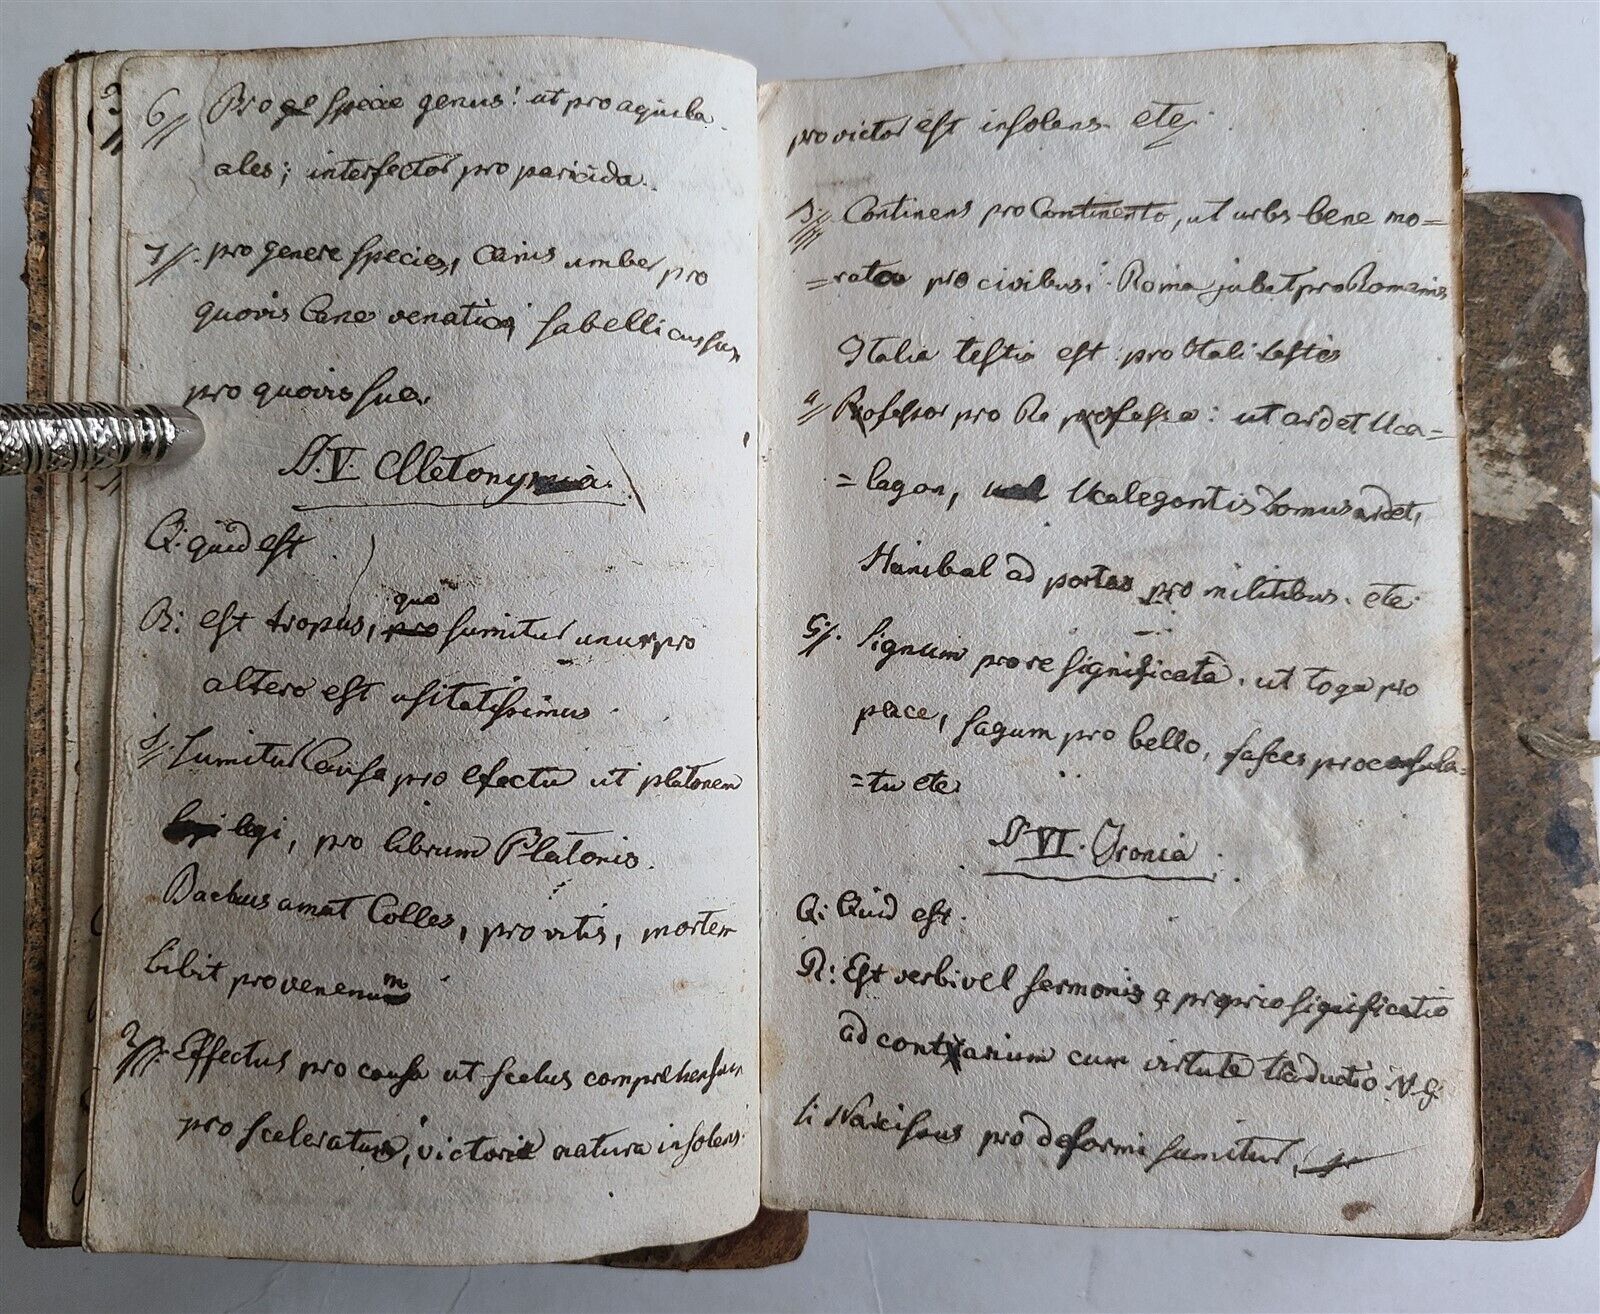 6// Pro specie genus: ut pro aquila
ales; interfector pro paricida.
7//. pro genere species, Canis umber pro
quovis Cane venatico; sabellicus sus,
pro quovis sue.
§. V. Metonymia.
Q: quid est
R: est tropus, quo pro sumitur unum pro
altero est usitatissimus
1//. Sumitur Causa pro efectu ut platonem
legi, pro librum Platonis.
Bachus amat Colles, pro vitis, mortem
bibit pro venenum
2//. Effectus pro causa ut scelus comprehensum
pro sceleratum, victorie natura insolens.
pro victor est insolens. etc.
3// Continens pro Contento, ut urbs bene mo=
=rata pro civibus; Roma jubet pro Romanis
Italia testis est pro Itali testes
4// Possessor pro Re possessa: ut ardet Uca=
=lagon, Ucalegontis Domus ardet,
Hanibal ad portas pro militibus. etc.
5//. Signum pro re significata, ut toga pro
pace, sagum pro bello, fasces pro consula=
=tu etc
§. VI. Ironia
Q: Quid est.
R: Est verbi vel sermonis a proprio significatio
ad contrarium cum virtute traductio. V. g.
1: Narcissus pro deformi sumitur,